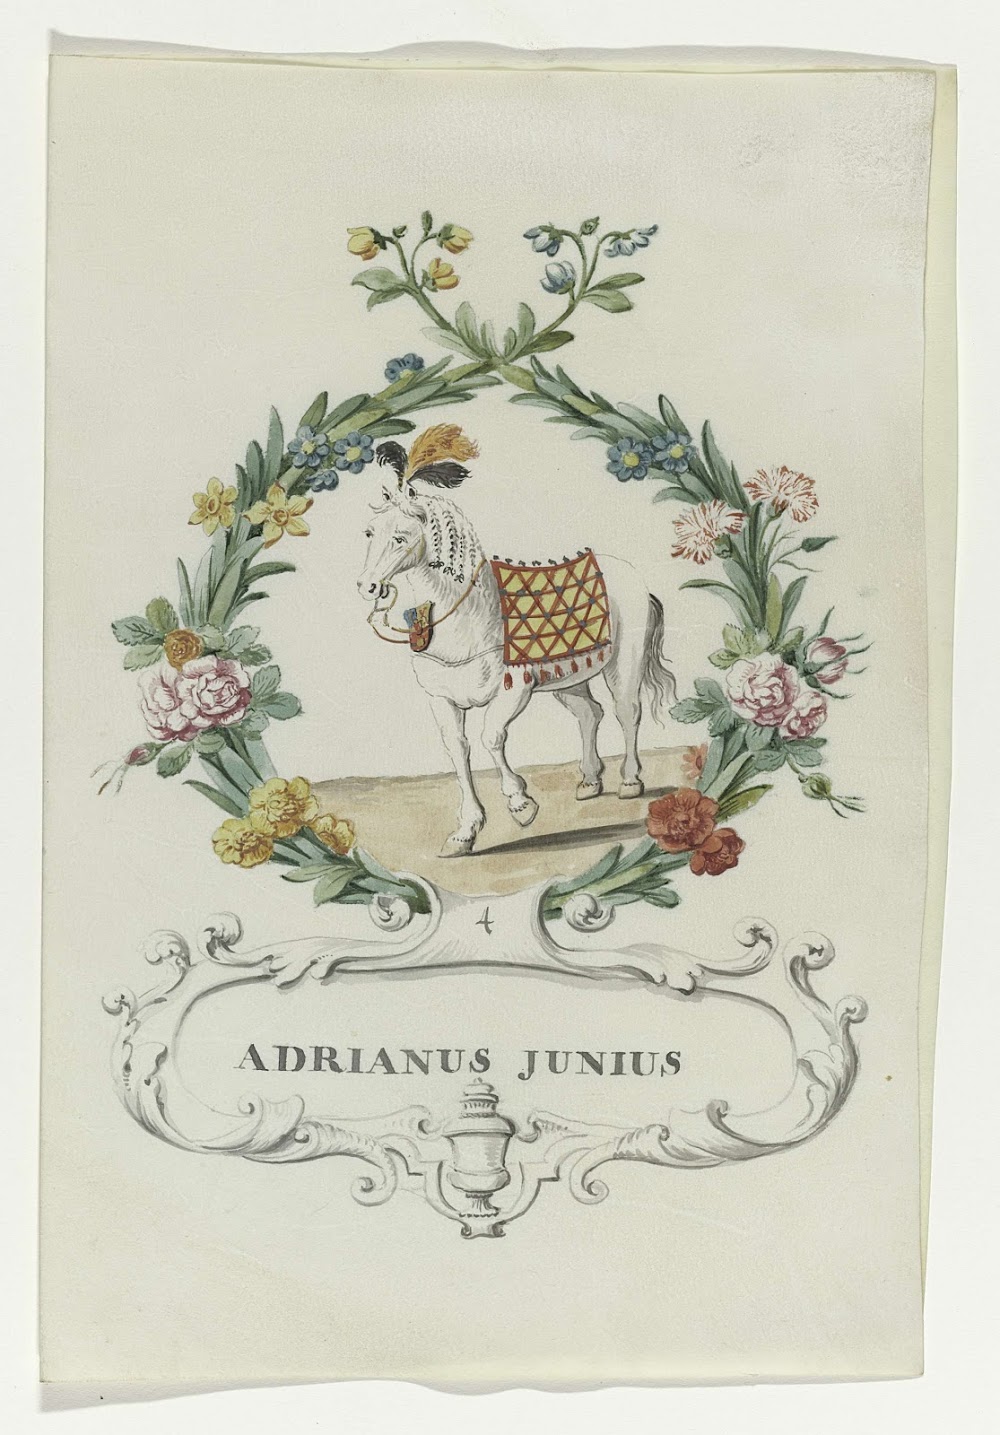 4
ADRIANUS JUNIUS